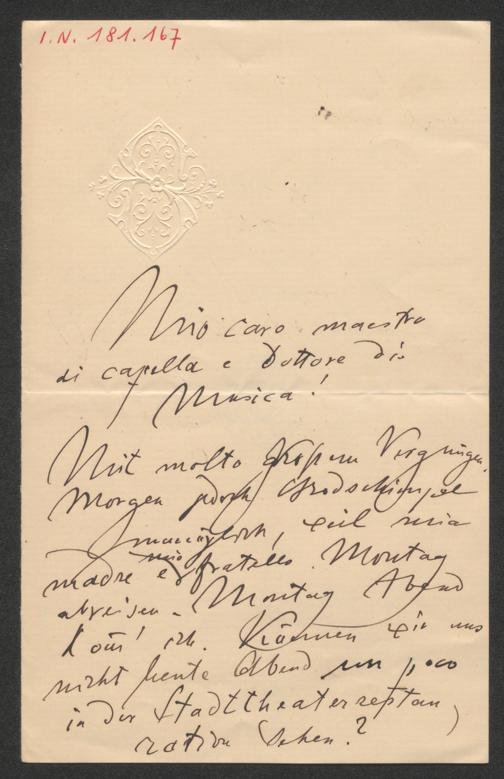 I.N. 181.167
Mio caro maestro
di capella e Dottore di
Musica!
Mit molto großem Vergnügen.
Morgen jedoch
unmöglich, weil mia
madre e mio fratello Montag
abreisen. Montag Abend
kom̄' ich. Können wir uns
nicht heute Abend un poco
in der Stadttheaterrestau
ration sehen?